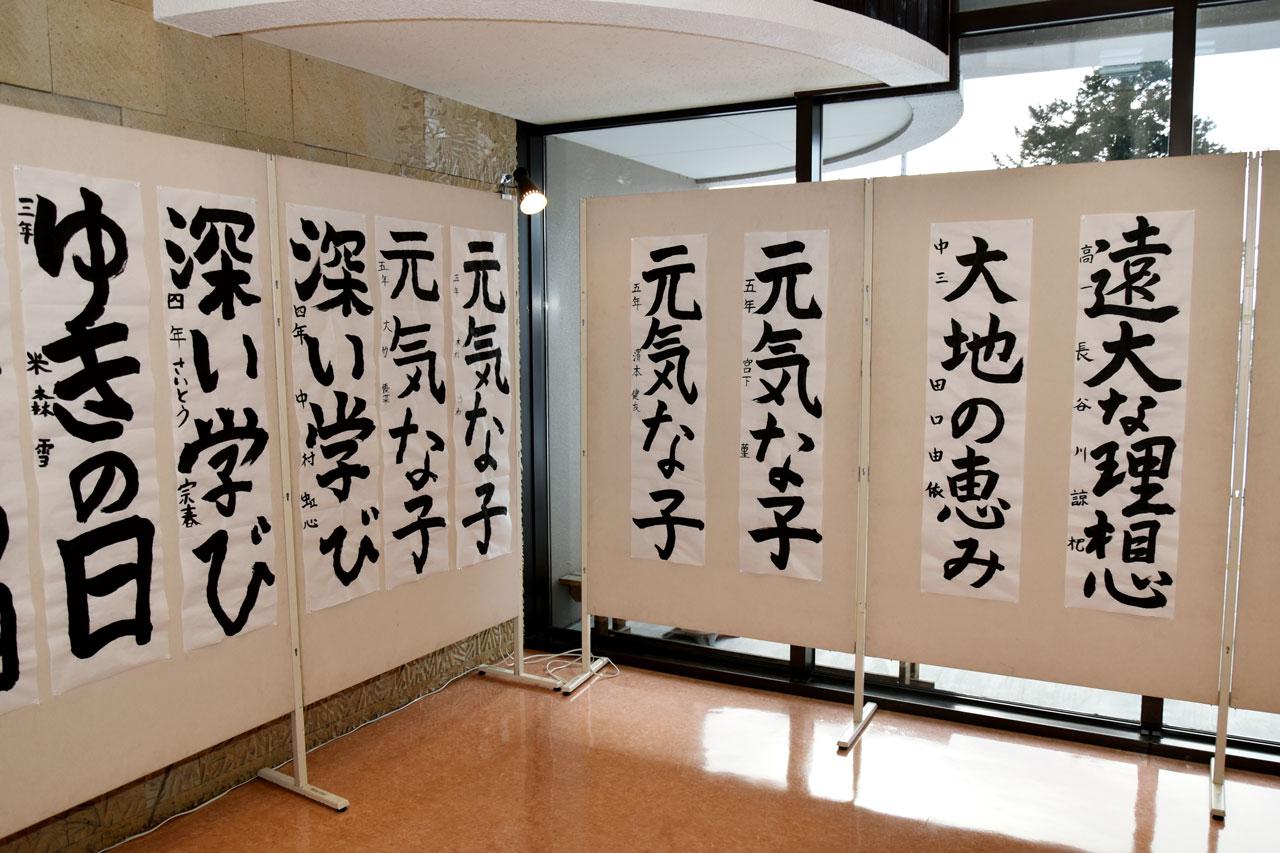 遠大な理想
高一 長谷川 諒杷
大地の恵み
中三 田口由依
元気な子
五年 宮下 菫
元気な子
五年 濱本 健友
元気な子
元気な子
五年 大竹
深い学び
四年 中村 虹心
深い学び
四年 さいとう 宗春
ゆきの日
三年 米森 雪